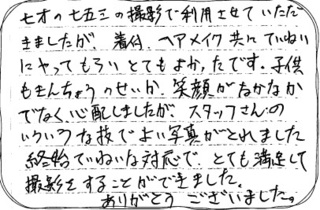 七才の七五三の撮影で利用させていただ
きましたが、着付、ヘアメイク共にていねい
にやってもらいとてもよかったです。子供
もきんちょうのせいか、笑顔がなかなか
でなく、心配しましたが、スタッフさんの
いろいろな技でよい写真がとれました
終始ていねいな対応で、とても満足して
撮影をすることができました。
ありがとうございました。